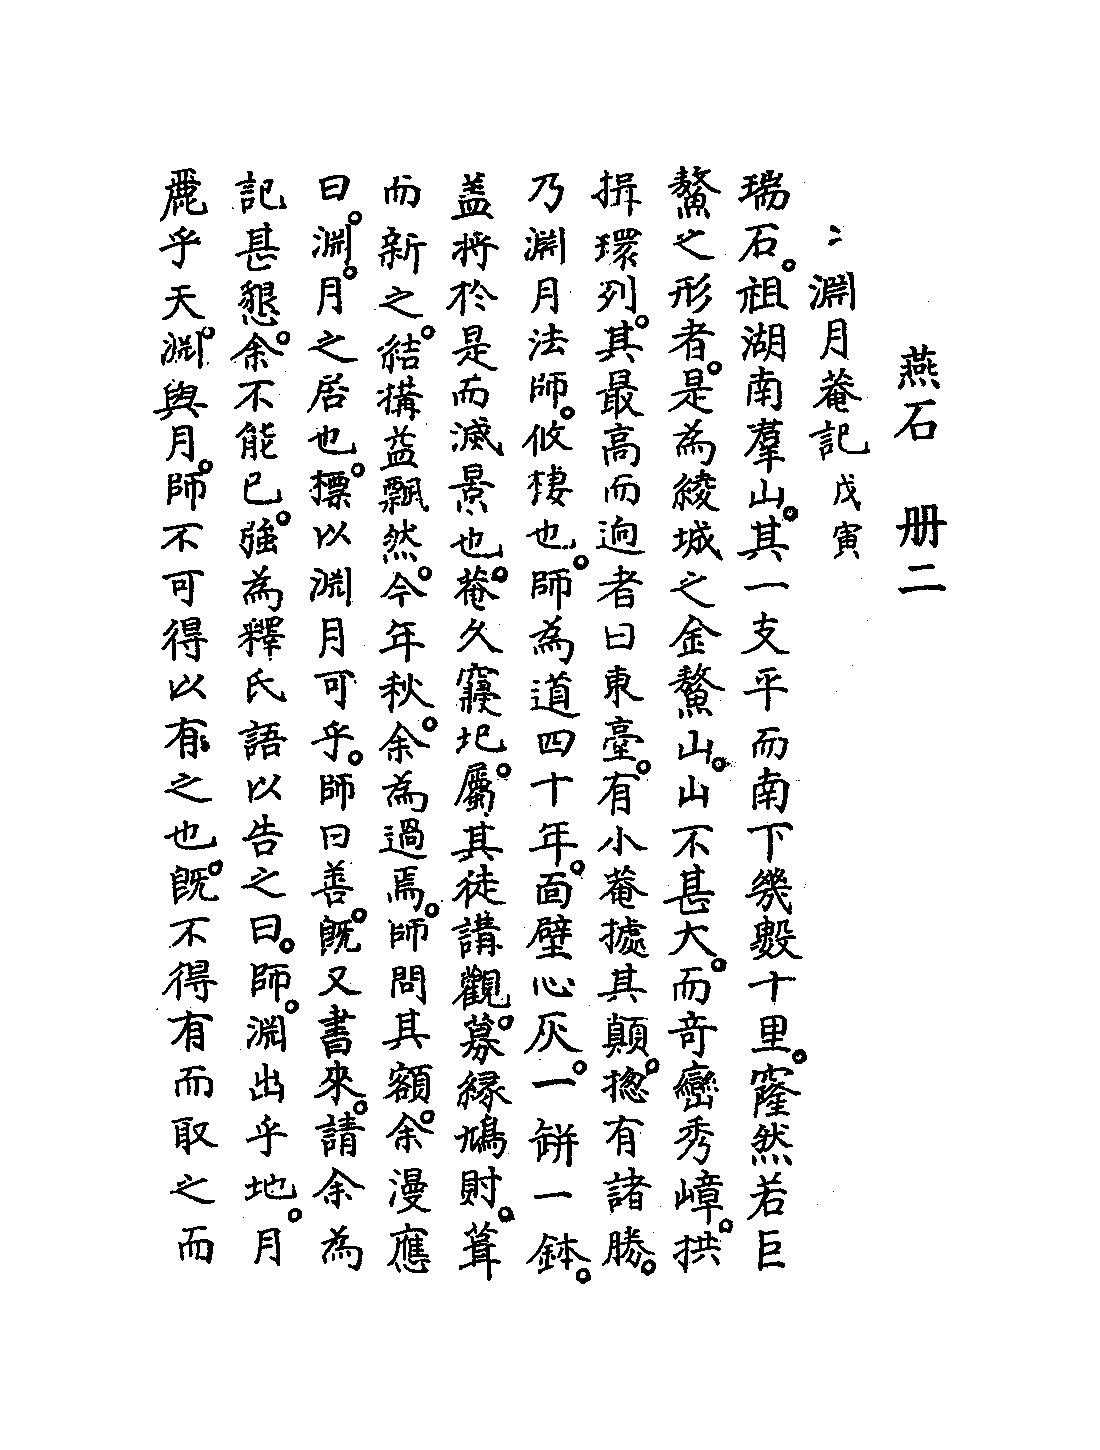 燕石 册二
淵月菴記 戊寅
瑞石。祖湖南羣山。其一支平而南下幾數十里。窿然若巨
鰲之形者。是為綾城之金鰲山。山不甚大。而奇巒秀嶂。拱
揖環列。其最高而逈者曰東臺。有小菴據其顛。揔有諸勝。
乃淵月法師。攸棲也。師為道四十年。面壁心灰。一缾一鉢。
盖將於是而滅景也。菴久寢圮。屬其徒講觀。募緣鳩財。葺
而新之。結搆益飄然。今年秋。余為過焉。師問其額。余漫應
曰。淵。月之居也。標以淵月可乎。師曰善。旣又書來。請余為
記甚懇。余不能已。強為釋氏語以告之曰。師。淵出乎地。月
麗乎天。淵與月。師不可得以有之也。旣不得有而取之而